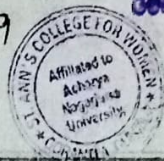 9
ST. ANN'S COLLEGE FOR WOMEN
Affiliated to
Acharya
Nagarjuna
University,